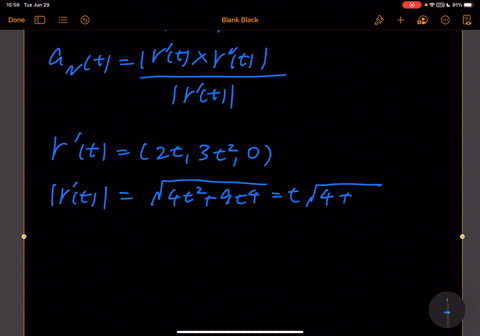 15:59 Tue Jun 29
91%
Done
Blank Black
a_N(t) = |r'(t) × r''(t)| / |r'(t)|
r'(t) = (2t, 3t², 0)
|r'(t)| = √(4t² + 9t⁴) = t √(4 +